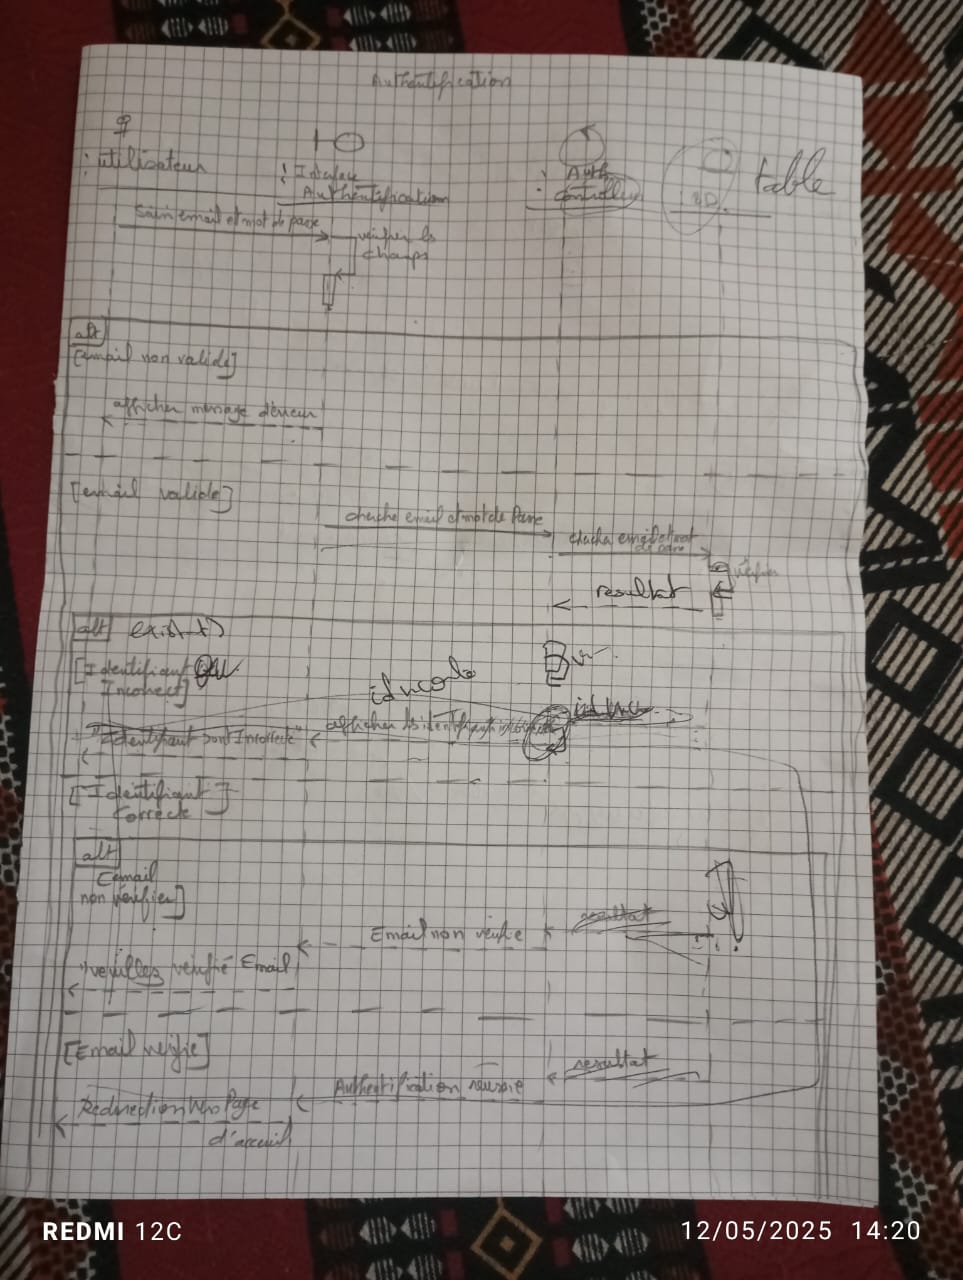 Authentification
: utilisateur
: Interface
Authentification
: Auth
Controller
BD.
table
Saisir email et mot de passe
verifier les
champs
alt
[email non valide]
afficher message d'erreur
[email valide]
cherche email et mot de Passe
chercher email et mot
de passe
vérifier
resultat
alt
[Identifiant
Incorrect]
"Identifiant sont Incorrecte"
[Identifiant]
Correcte
alt
[email
non vérifier]
resultat
Email non verifie
"veuilles verifié Email
[Email verifie]
resultat
Authentification reussie
Redirection vers Page
d'acceuil
REDMI 12C
12/05/2025 14:20